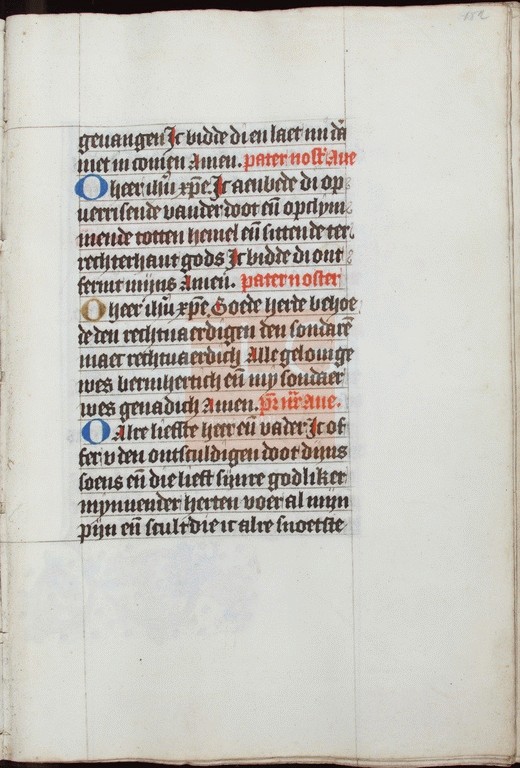 geuangen Ic bidde di en laet mi dā
niet in comen Amen. pater nostˀ Aue
O heer ihū xp̄e Ic aenbede di op
uerrisende vander doot eñ opclym
mende totten hemel eñ sittende ter
rechterhant gods Ic bidde di ont
fermt mijns Amen. pater noster
O heer ihū xp̄e Goede herde behoe
de den rechtuaerdigen den sondarē
maect rechtuaerdich Alle gelouige
wes bermhertich eñ my sondaer
wes genadich Amen. pr̄ nr̄ Aue.
O Alre liefste heer eñ vader Ic of
fer v den ontsculdigen doot dijns
soens eñ die lieft sijnre godliker
mynnender herten voer al mijn
pijn eñ scult die ic alre snoetste